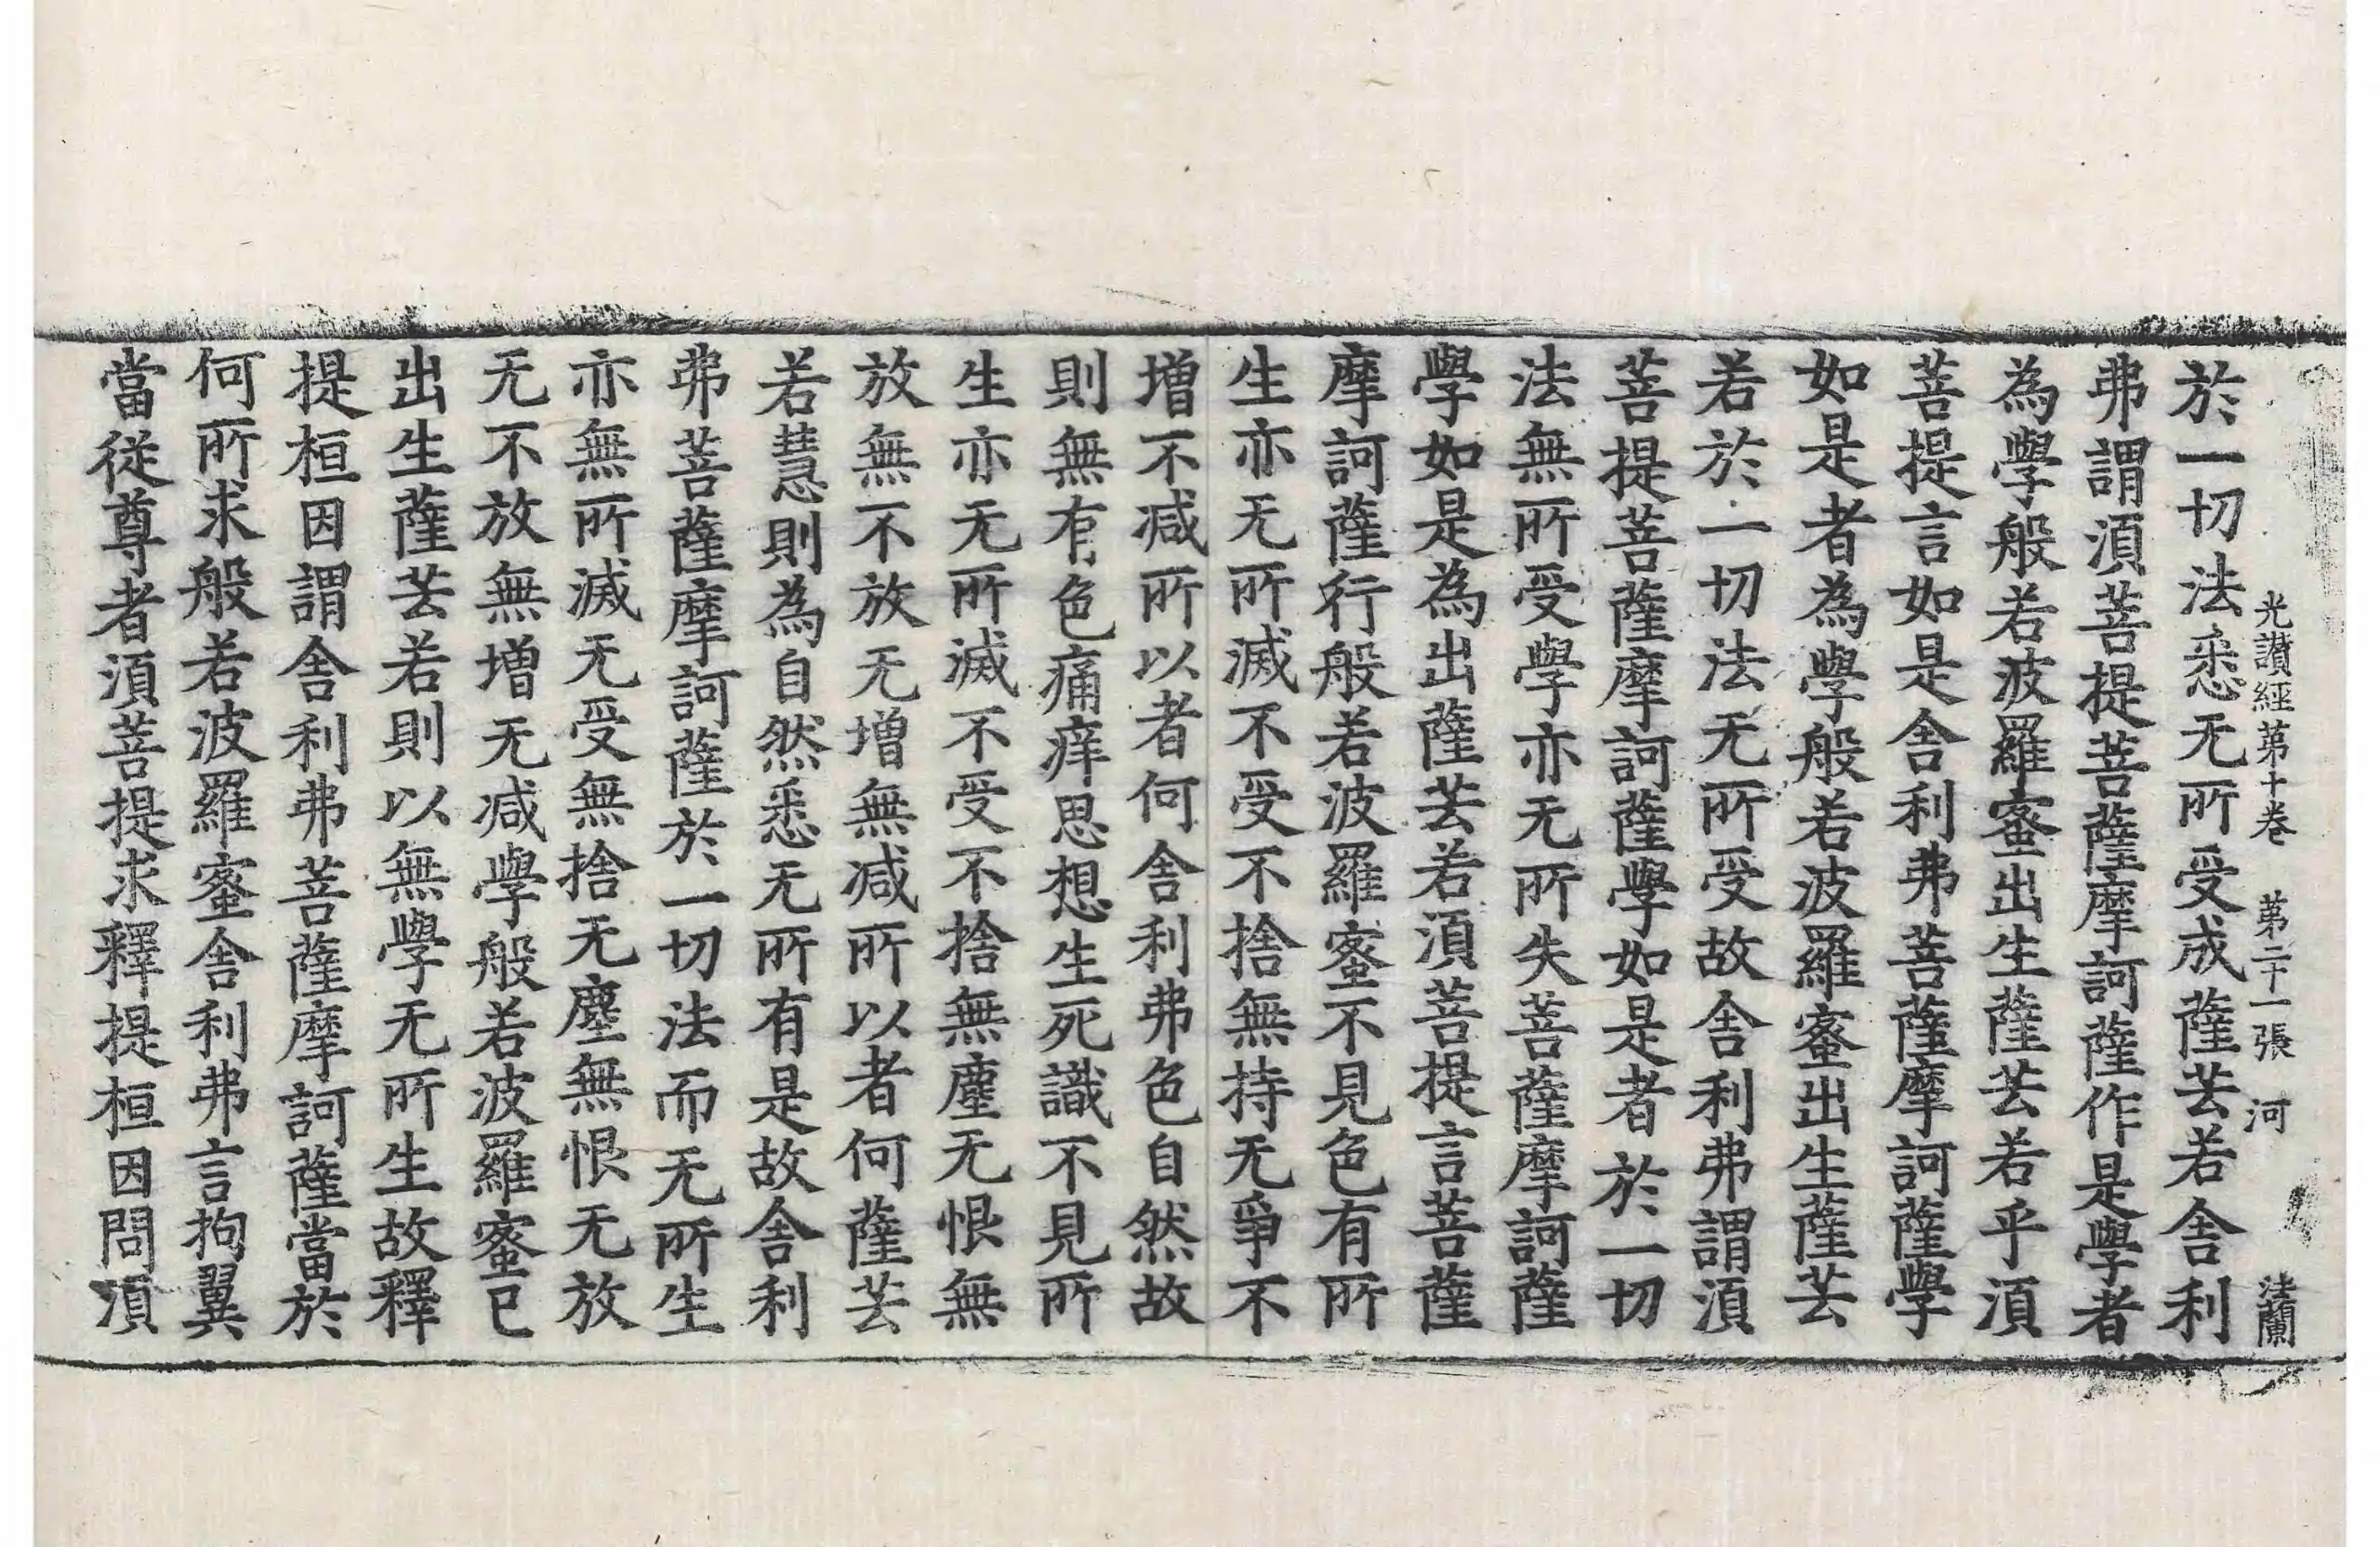 光讃經第十卷　第二十一張　河　法蘭
於一切法悉无所受成薩芸若舍利
弗謂須菩提菩薩摩訶薩作是學者
為學般若波羅蜜出生薩芸若乎須
菩提言如是舍利弗菩薩摩訶薩學
如是者為學般若波羅蜜出生薩芸
若於一切法无所受故舍利弗謂須
菩提菩薩摩訶薩學如是者於一切
法無所受學亦无所失菩薩摩訶薩
學如是為出薩芸若須菩提言菩薩
摩訶薩行般若波羅蜜不見色有所
生亦无所滅不受不捨無持无爭不
增不减所以者何舍利弗色自然故
則無有色痛痒思想生死識不見所
生亦无所滅不受不捨無塵无恨無
放無不放无增無减所以者何薩芸
若慧則為自然悉无所有是故舍利
弗菩薩摩訶薩於一切法而无所生
亦無所滅无受無捨无塵無恨无放
无不放無增无减學般若波羅蜜已
出生薩芸若則以無學无所生故釋
提桓因謂舍利弗菩薩摩訶薩當於
何所求般若波羅蜜舍利弗言拘翼
當從尊者須菩提求釋提桓因問須